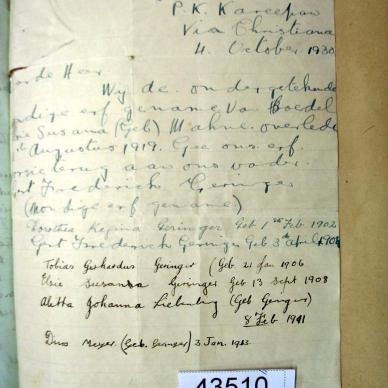 P. K. Kareepan
Via Christiana
4. October 1930
de Heer
Wy de. ondergetekende
erf genaame Van Boedel
Susana (Geb) Mahne. overlede
Augustus 1919. Gee ons erf.
terug aan ons vader.
Frederich Geringer
(Mondige erf genaame)
Dorothea Regina Geringer Geb 1ste Feb 1902
Gert Frederich Geringer Geb 3de April 1904
Tobias Gerhardus Geringer (Geb. 21 Jan 1906
Elsie Susanna Geringer Geb 13 Sept 1908
Aletta Johanna Liebenberg (Geb Geringer)
8 Feb 1911
Meyer (Geb. Geringer) 3 Jan. 1913
43510